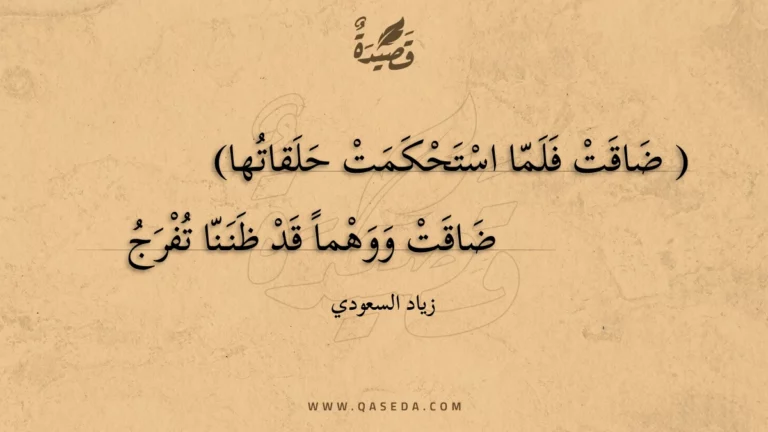 قَصِيدَةٌ
( ضَاقَتْ فَلَمّا اسْتَحْكَمَتْ حَلَقاتُها)
ضَاقَتْ وَوَهْماً قَدْ ظَنَنّا تُفْرَجُ
زياد السعودي
WWW.QASEDA.COM